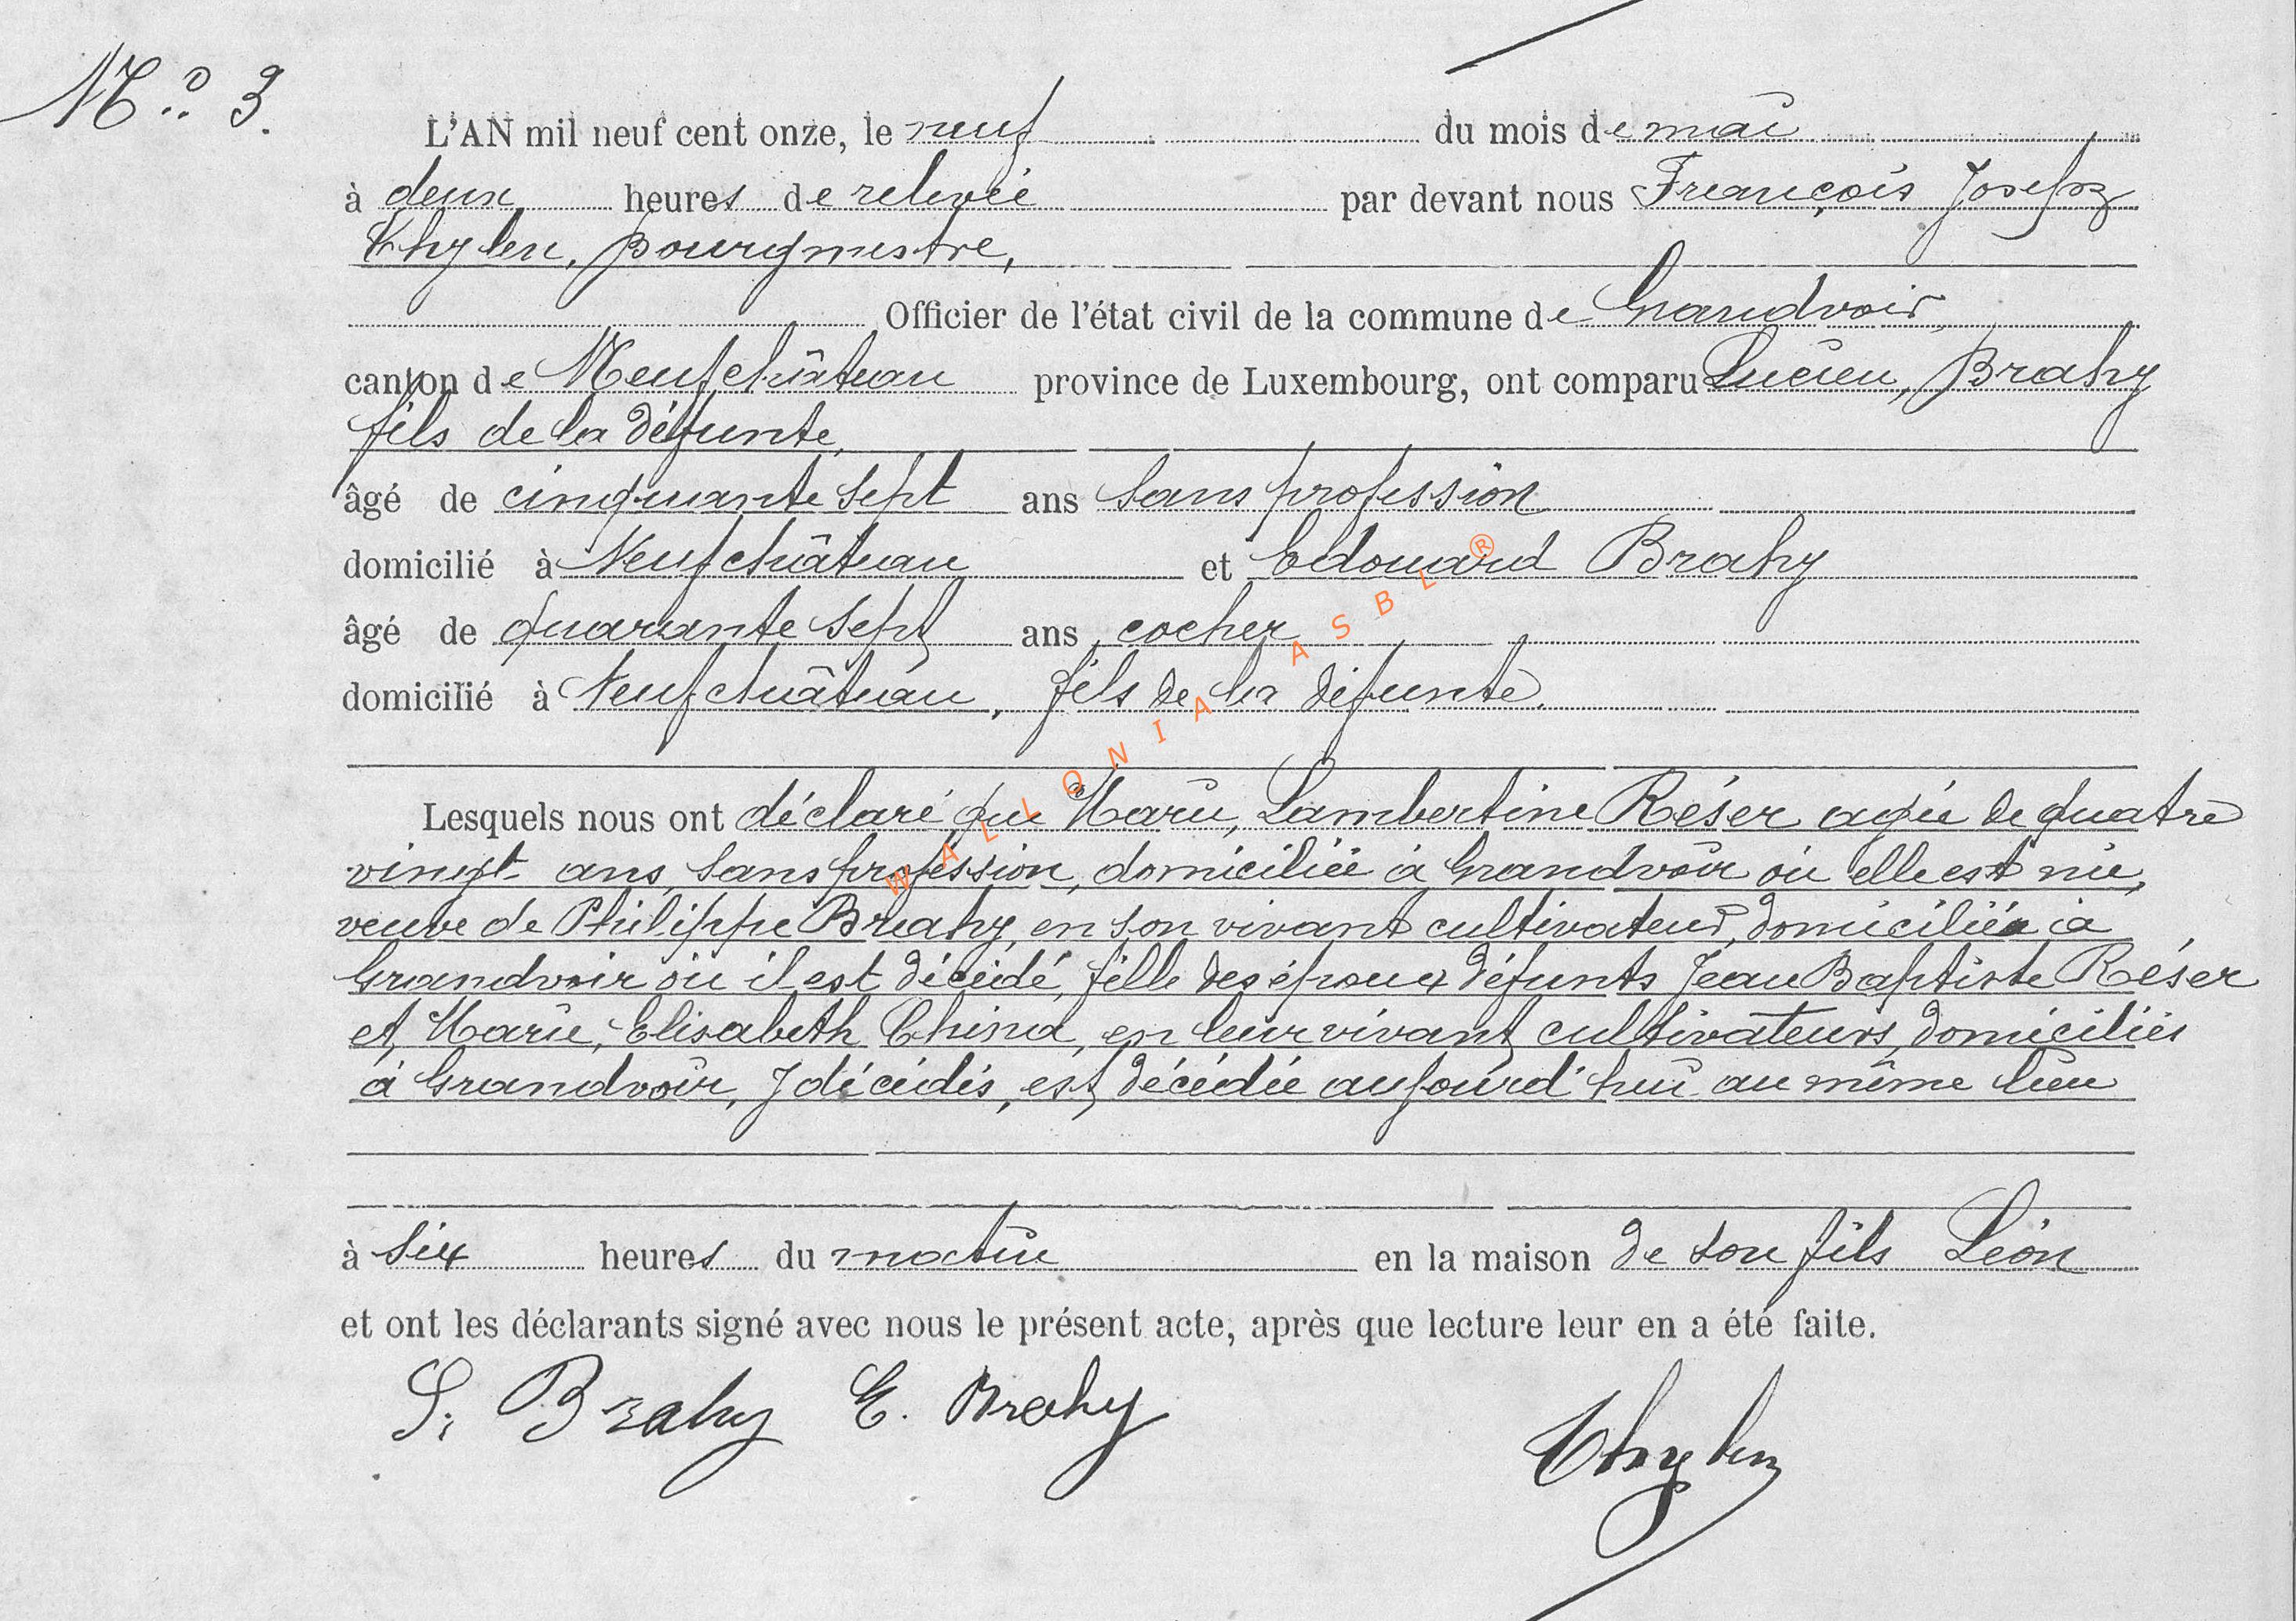 N.º 3.
L'AN mil neuf cent onze, le neuf du mois de mai
à deux heures de relevée par devant nous François Joseph
Thylen, Bourgmestre,
Officier de l'état civil de la commune de Grandvoir,
canton de Neufchâteau province de Luxembourg, ont comparu Lucien, Brahy
fils de la défunte,
âgé de cinquante sept ans sans profession
domicilié à Neufchâteau et Edouard Brahy
âgé de quarante sept ans, cocher,
domicilié à Neufchâteau, fils de la défunte.
Lesquels nous ont déclaré que Marie, Lambertine Réser agée de quatre
vingt ans, sans profession, domiciliée à Grandvoir où elle est née,
veuve de Philippe Brahy, en son vivant cultivateur, domicilié à
Grandvoir où il est décédé, fille des époux défunts Jean Baptiste Réser
et, Marie, Elisabeth China, en leur vivant cultivateurs, domiciliés
à Grandvoir, y décédés, est décédée aujourd'hui au même lieu
à six heures du matin en la maison de son fils Léon
et ont les déclarants signé avec nous le présent acte, après que lecture leur en a été faite.
L. Brahy E. Brahy
Thylen
WALLONIA ASBL ®